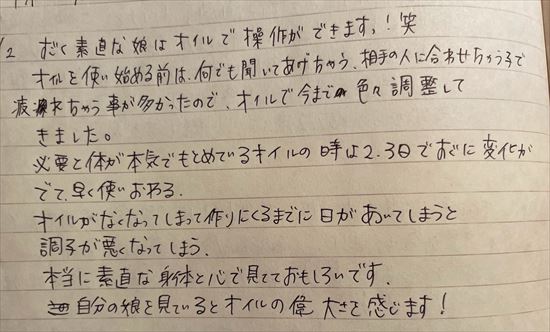 2 すごく素直な娘はオイルで操作ができます,!笑
オイルを使い始める前は、何でも聞いてあげちゃう、相手の人に合わせちゃうコで
疲れちゃう事が多かったので、オイルで今まで色々調整して
きました。
必要と体が本気でもとめているオイルの時は2.3日ですぐに変化が
でて、早く使いおわる。
オイルがなくなってしまって作りにくるまでに日があいてしまうと
調子が悪くなってしまう。
本当に素直な身体と心で見てておもしろいです。
自分の娘を見ているとオイルの偉大さを感じます!